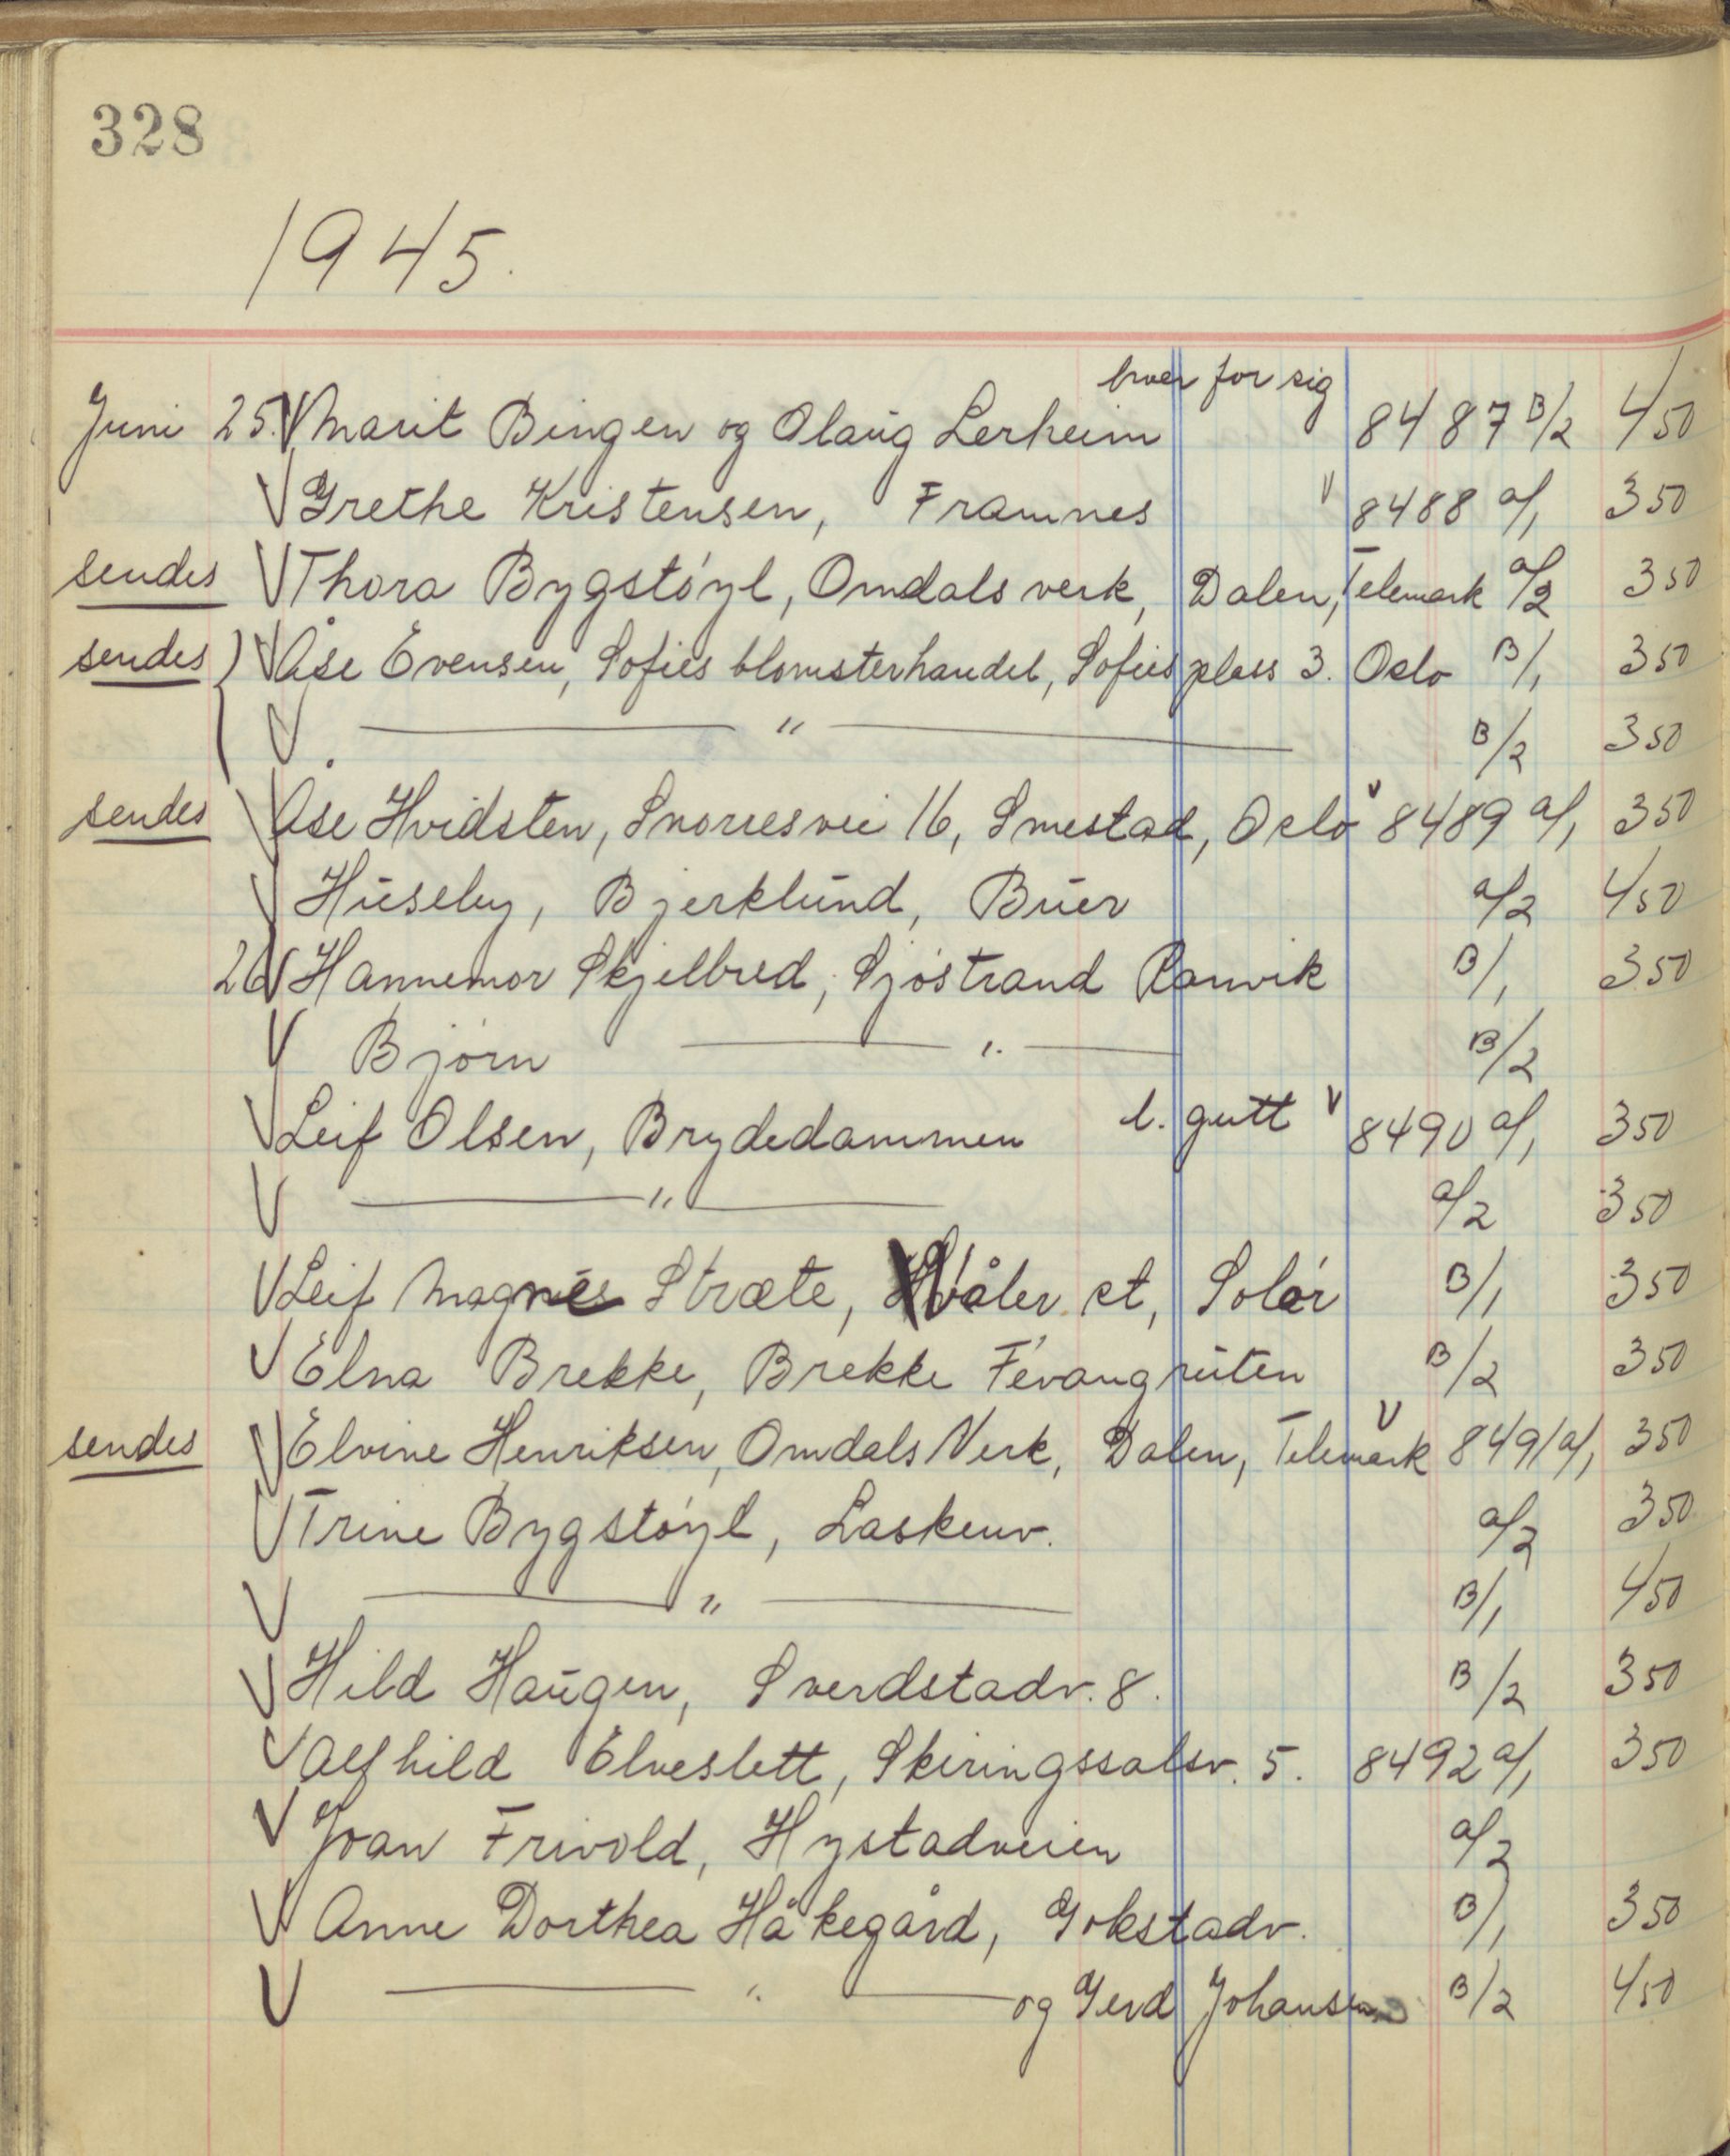 328
1945.
hver for sig
Juni 25. V Marit Bingen og Olaug Lerheim 8487 B/2 4 50
V Grethe Kristensen, Framnes V 8488 a/1 3 50
sendes V Thora Bygstöyl, Omdals verk, Dalen, Telemark a/2 3 50
sendes V Åse Evensen, Sofies blomsterhandel, Sofies plass 3. Oslo B/1 3 50
V — " — B/2 3 50
sendes V Åse Hvidsten, Snorresvei 16, Smestad, Oslo V 8489 a/1 3 50
V Huseby, Bjerklund, Buer a/2 4 50
26 V Hannemor Skjelbred, Sjöstrand Ranvik B/1 3 50
V Björn — " — B/2
V Leif Olsen, Brydedammen l. gutt V 8490 a/1 3 50
V — " — a/2 3 50
V Leif Magnes Stræte, Våler st, Solör B/1 3 50
V Elna Brekke, Brekke Fevangruten B/2 3 50
sendes V Elvine Henriksen, Omdals Verk, Dalen, Telemark V 8491 a/1 3 50
V Trine Bygstöyl, Laskenv. a/2 3 50
V — " — B/1 4 50
V Hild Haugen, Sverdstadv. 8. B/2 3 50
V Alfhild Elveslett, Skiringssalsv. 5. 8492 a/1 3 50
V Joan Frivold, Hystadveien a/2
V Anne Dorthea Håkegård, Gokstadv. B/1 3 50
V — " — og Gerd Johansen B/2 4 50